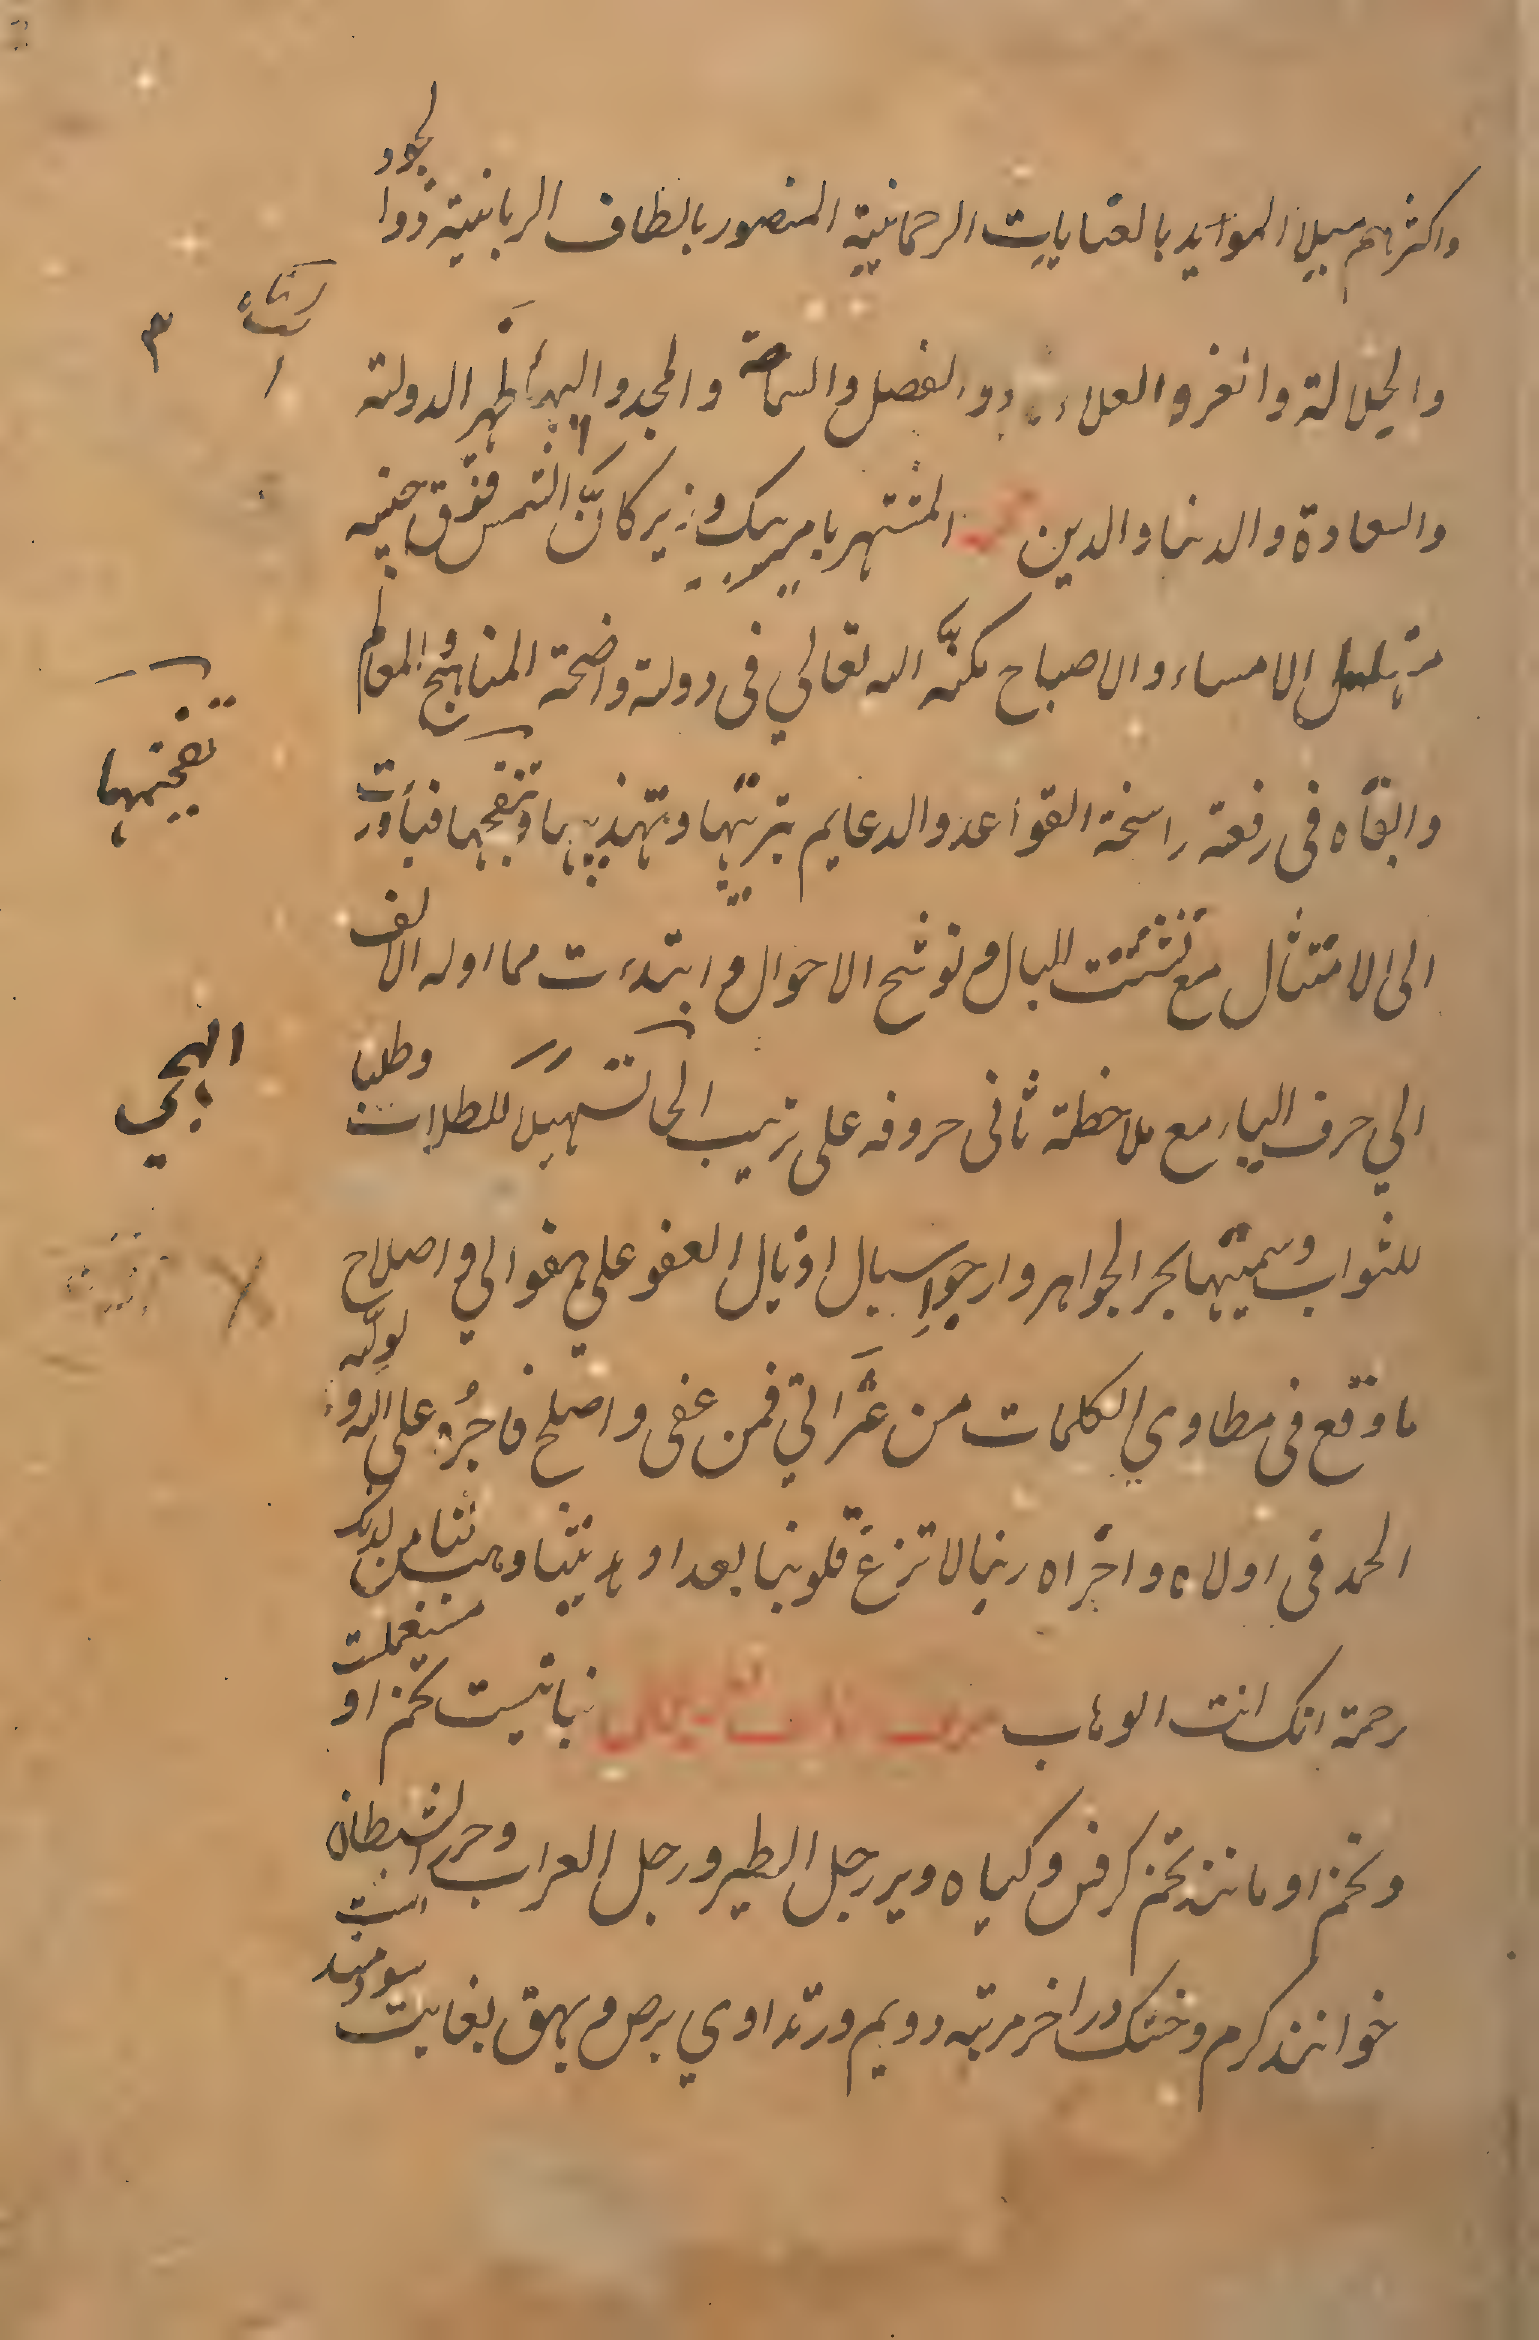 واكثرهم ميلا المؤيد بالعنايات الرحمانية المنصور بالطاف الربانية ذوا لجود
والجلالة والعز والعلاء ذو الفضل والسماحة والمجد والبهاء ظهر الدولة
٣
والسعادة والدنيا والدين محمد المشتهر بامير بيك وزير كانَّ الشمس فوق جبينه
متهلل الامساء والاصباح مكنَّه الله تعالي في دولة واضحة المناهج والمعالم
وابقاه في رفعة راسخة القواعد والدعايم بترتيبها وتهذيبها وتنقيحها فبادرت
تنقيحها
الى الامتثال مع تشتت البال وتوشح الاحوال وابتدءت مما اوله الالف
الي حرف الياء مع ملاحظة ثانى حروفه على ترتيب تسهيلا للطلاب وطلبا
التهجي
للثواب وسميتها بحر الجواهر وارجوا اسبال اذيال العفو علي هفواتي واصلاح
ما وقع فى مطاوي الكلمات من عثراتي فمن عفى واصلح فاجرُه على الله وله
الحمد فى اولاه واخراه ربنا لا تزغ قلوبنا بعد اذ هديتنا وهب لنا من لدنك
رحمة انك انت الوهاب حرف الالف نباتيست تخم او مستعملت
وتخم او مانند تخم كرفس وكياه ويرا رجل الطير ورجل الغراب وحرز الشيطان
خوانند كرم وخشك در اخر مرتبه دويم ودر تداوي برص وبهق بغايت سودمند است